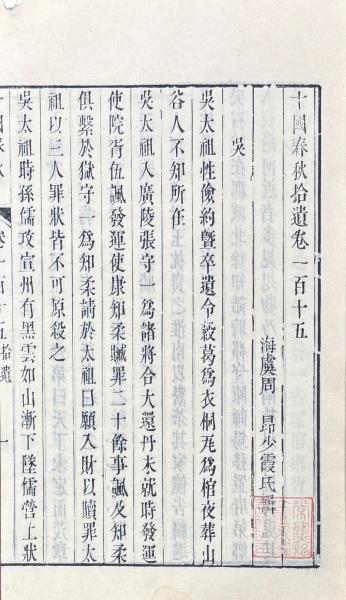 十國春秋拾遺卷一百十五
海虞周昂少霞氏輯
吳
吳太祖性儉約暨卒遺令縠葛爲衣桐瓦爲棺夜葬山
谷人不知所在
吳太祖入廣陵張守一爲諸將合大還丹未就時發運
使院胥伍諷發運使康知柔贓罪二十餘事諷及知柔
俱繫於獄守一爲知柔請於太祖曰願入財以贖罪太
祖以三人罪狀皆不可原殺之
吳太祖時孫儒攻宣州有黑雲如山漸下墜儒營上狀
十國春秋 卷一百十五拾遺 一